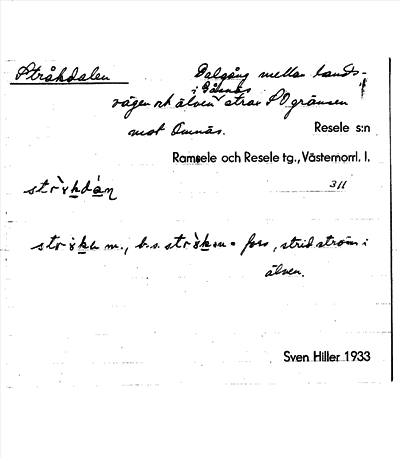 Stråkdalen Dalgång mellan lands-
i Gåsnäs
vägen och älven strax SO gränsen
mot Omnäs. Resele s:n
Ramsele och Resele tg., Västernorrl. l.
311
m., b. s. = fors, strid ström i
älven.
Sven Hiller 1933